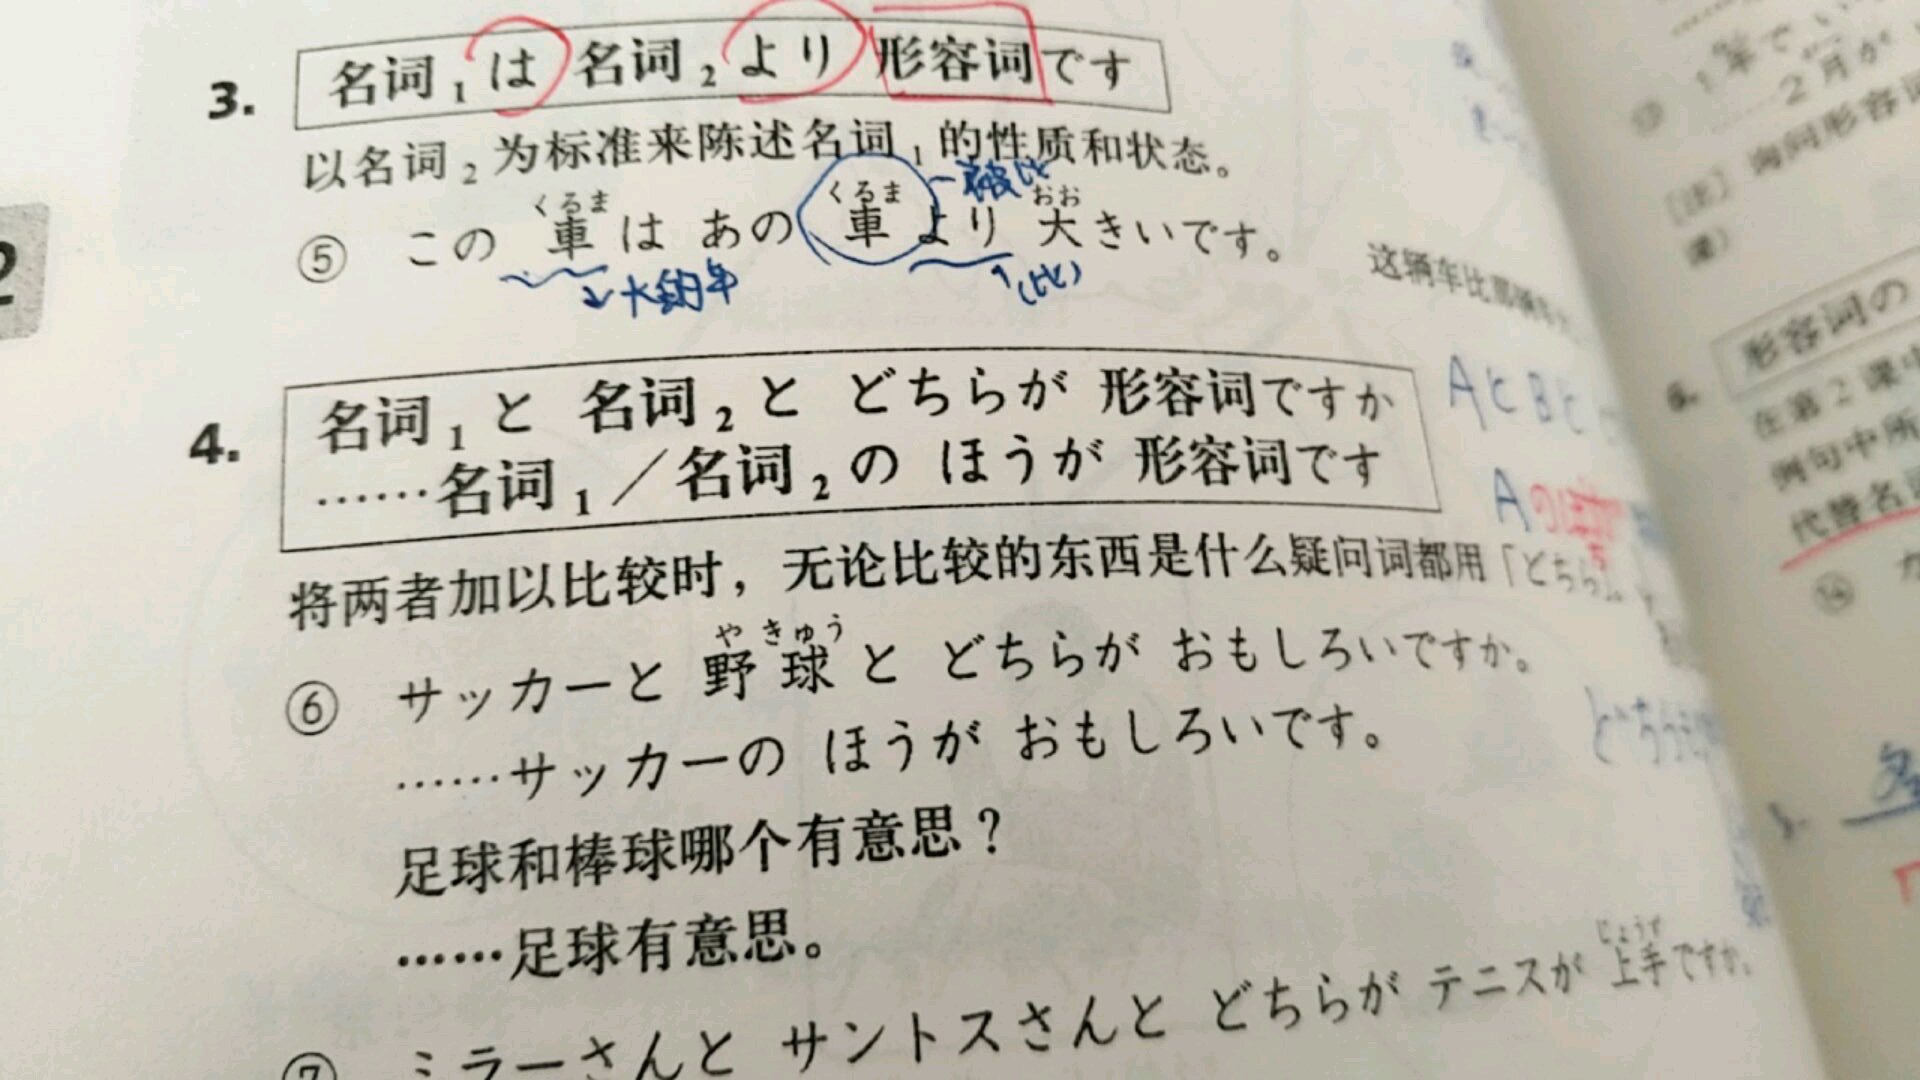 3. 名词1 は 名词2 より 形容词です
以名词2 为标准来陈述名词1 的性质和状态。
被比
くるま くるま おお
⑤ この 車は あの 車より 大きいです。
大的车 (比)
这辆车比那辆车
4. 名词1 と 名词2 と どちらが 形容词ですか
……名词1／名词2 の ほうが 形容词です
AとBと
Aのほう
将两者加以比较时，无论比较的东西是什么疑问词都用「どちら」。
やきゅう
⑥ サッカーと 野球と どちらが おもしろいですか。
……サッカーの ほうが おもしろいです。
どちらも
足球和棒球哪个有意思？
……足球有意思。
じょうず
⑦ ミラーさんと サントスさんと どちらが テニスが 上手ですか。
1年で
……2月が
⑬
询问形容词
［注］
课）
形容词の
在第2课中
例句中所
代替名词
⑭ カ
名